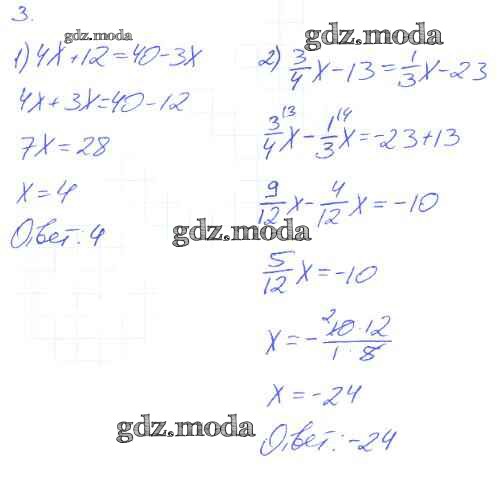 3.
gdz.moda
gdz.moda
1) 4x+12=40-3x
4x+3x=40-12
7x=28
x=4
Ответ: 4
2) 3/4 x-13=1/3 x-23
3/4 |3 x-1/3 |4 x=-23+13
9/12 x-4/12 x=-10
gdz.moda
5/12 x=-10
x=-(2 10·12)/(1·5)
x=-24
gdz.moda
Ответ: -24